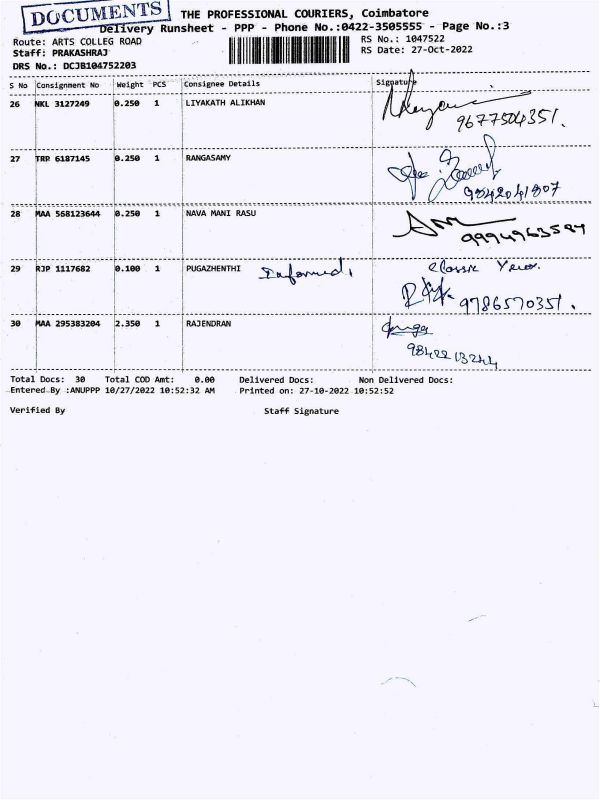 DOCUMENTS
THE PROFESSIONAL COURIERS, Coimbatore
Delivery Runsheet - PPP - Phone No.:0422-3505555 - Page No.:3
Route: ARTS COLLEG ROAD
Staff: PRAKASHRAJ
DRS No.: DCJB104752203
RS No.: 1047522
RS Date: 27-Oct-2022
S No Consignment No Weight PCS Consignee Details Signature
26 NKL 3127249 0.250 1 LIYAKATH ALIKHAN
9677504351.
27 TRP 6187145 0.250 1 RANGASAMY
9842041807
28 MAA 558123644 0.250 1 NAVA MANI RASU
29 RJP 1117682 0.100 1 PUGAZHENTHI Informed,
Classic
9786570351.
30 MAA 295383204 2.350 1 RAJENDRAN
Total Docs: 30 Total COD Amt: 0.00 Delivered Docs: Non Delivered Docs:
Entered By :ANUPPP 10/27/2022 10:52:32 AM Printed on: 27-10-2022 10:52:52
Verified By Staff Signature